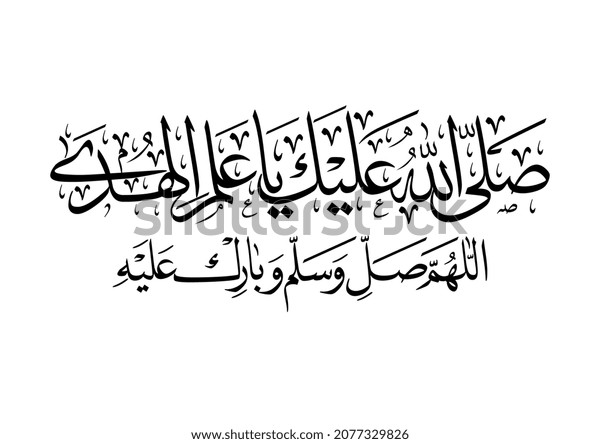 صَلَّى اللهُ عَلَيْكَ يَا عَلَمَ الْهُدَى
اللَّهُمَّ صَلِّ وَسَلِّم وَبَارِكْ عَلَيْهِ
shutterstock.com · 2077329826